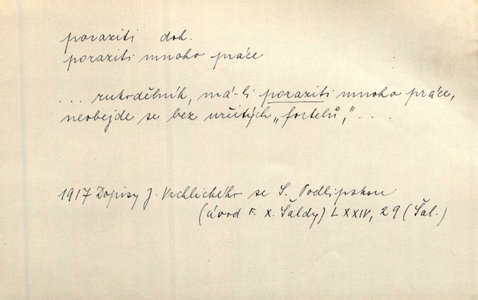 poraziti dok.
poraziti mnoho práce
... rukodělník, má-li poraziti mnoho práce,
neobejde se bez určitých „fortelů,“ ....
1917 Dopisy J. Vrchlického se S. Podlipskou
(úvod F. X. Šaldy) LXXIV, 29 (Šal.)